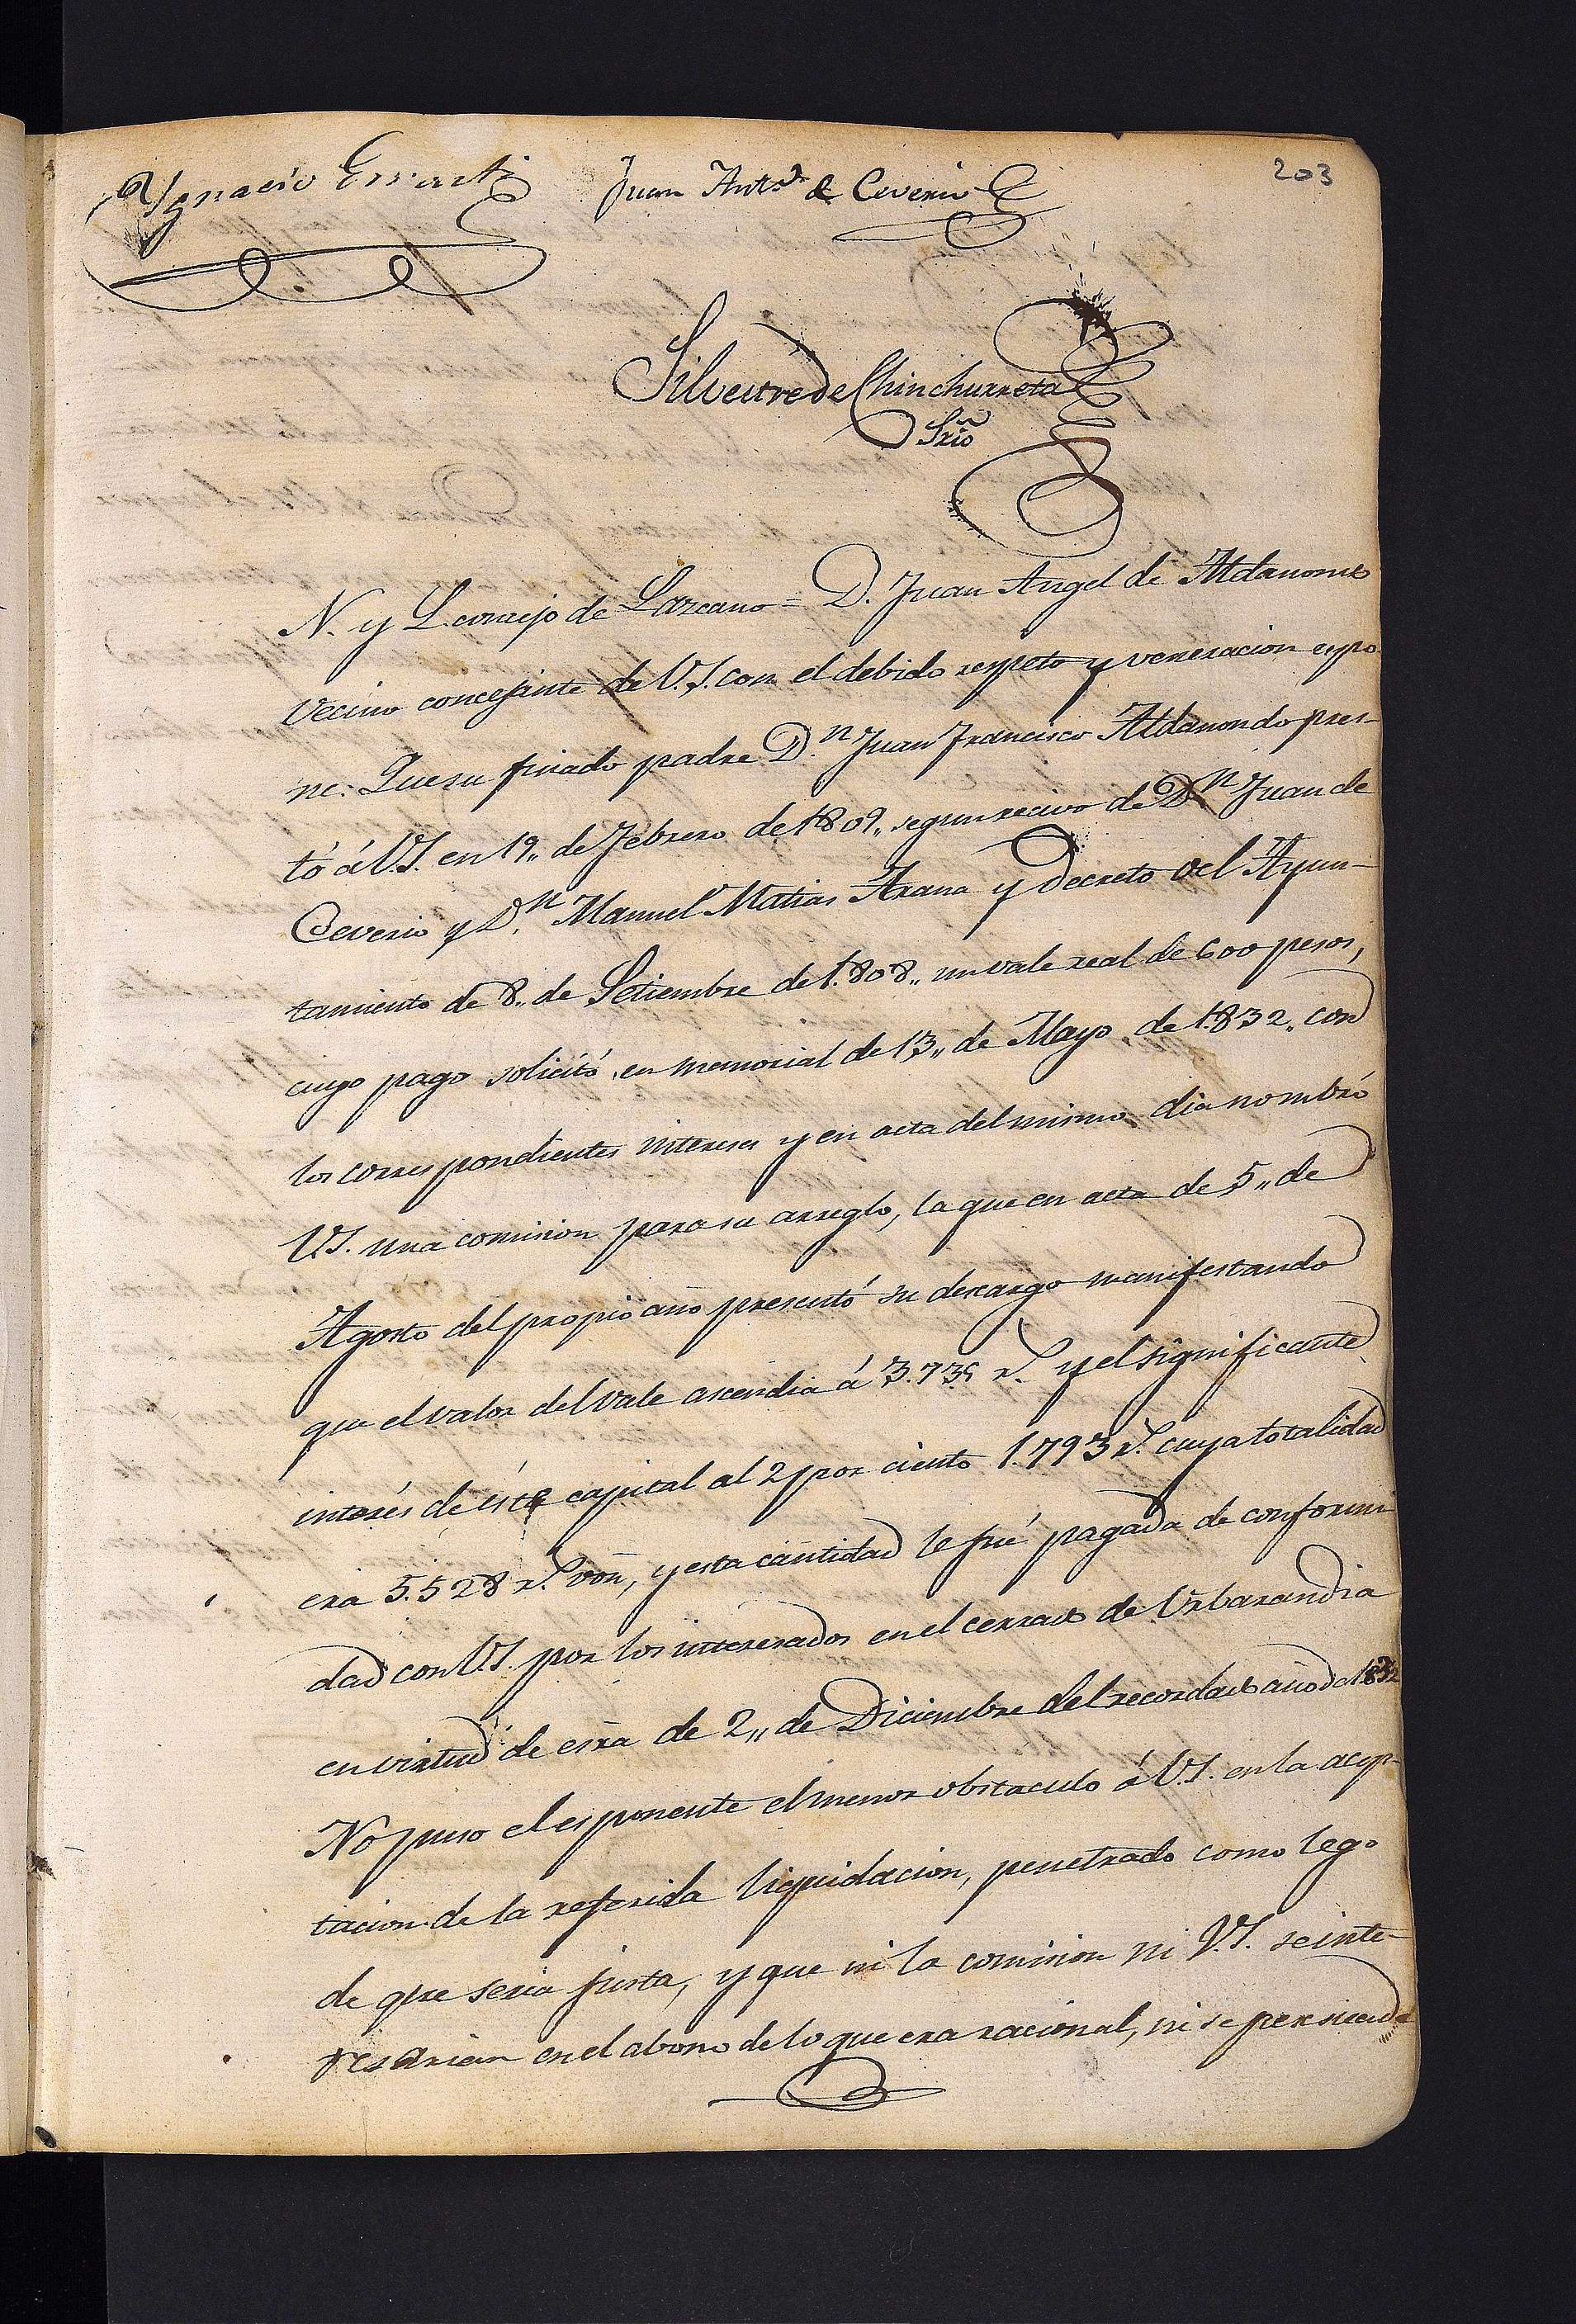 203
Ygnacio Errasti Juan Anto. de Ceverio
Silvestre de Chinchurreta
Srio
N. y L. concejo de Lazcano = D. Juan Angel de Aldanondo
Vecino concejante de V.S. con el debido respeto y veneracion espo
ne: Que su finado padre D.n Juan Francisco Aldanondo pres-
tó á V.S. en 19,, de Febrero de 1809,, segun recivo de D.n Juan de
Ceverio y D.n Manuel Matias Arana y Decreto del Ayun-
tamiento de 8,, de Setiembre de 1.808,, un vale real de 600 pesos,
cuyo pago solicitó en memorial de 13,, de Mayo de 1.832,, con
los correspondientes intereses y en acta del mismo dia nombró
V.S. una comision para su arreglo, la que en acta de 5,, de
Agosto del propio año presentó su descargo manifestando
que el valor del Vale ascendia á 3.735 r.s y el significante
interés de éste capital al 2 por ciento 1.793 r.s cuya totalidad
era 5.528 r.s von, y esta cantidad le fué pagada de conformi
dad con V.S. por los interesados en el cerrado de Urbarandia
en virtud de esrã de 2,, de Diciembre del recordado año de 1832
No puso el esponente el menor obstaculo á V.S. en la acep-
tacion de la referida liquidacion, penetrado como lego
de que seria justa, y que ni la comision ni V.S. se inte-
resarian en el abono de lo que era racional, ni se persuade